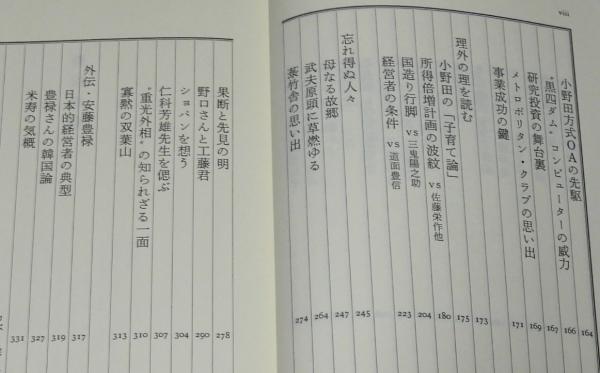 viii
小野田方式OAの先駆 164
“黒四ダム”コンピューターの威力 166
研究投資の舞台裏 167
メトロポリタン・クラブの思い出 169
事業成功の鍵 171
理外の理を読む 173
小野田の「子育て論」 175
所得倍増計画の波紋 vs 佐藤栄作他 180
国造り行脚 vs 三鬼陽之助 204
経営者の条件 vs 道面豊信 223
忘れ得ぬ人々 245
母なる故郷 247
武夫原頭に草燃ゆる 264
竹舎の思い出 274
果断と先見の明 278
野口さんと工藤君 290
ショパンを想う 304
仁科芳雄先生を偲ぶ 307
“重光外相”の知られざる一面 310
寡黙の双葉山 313
外伝・安藤豊禄 317
日本的経営者の典型 319
豊禄さんの韓国論 327
米寿の気概 331